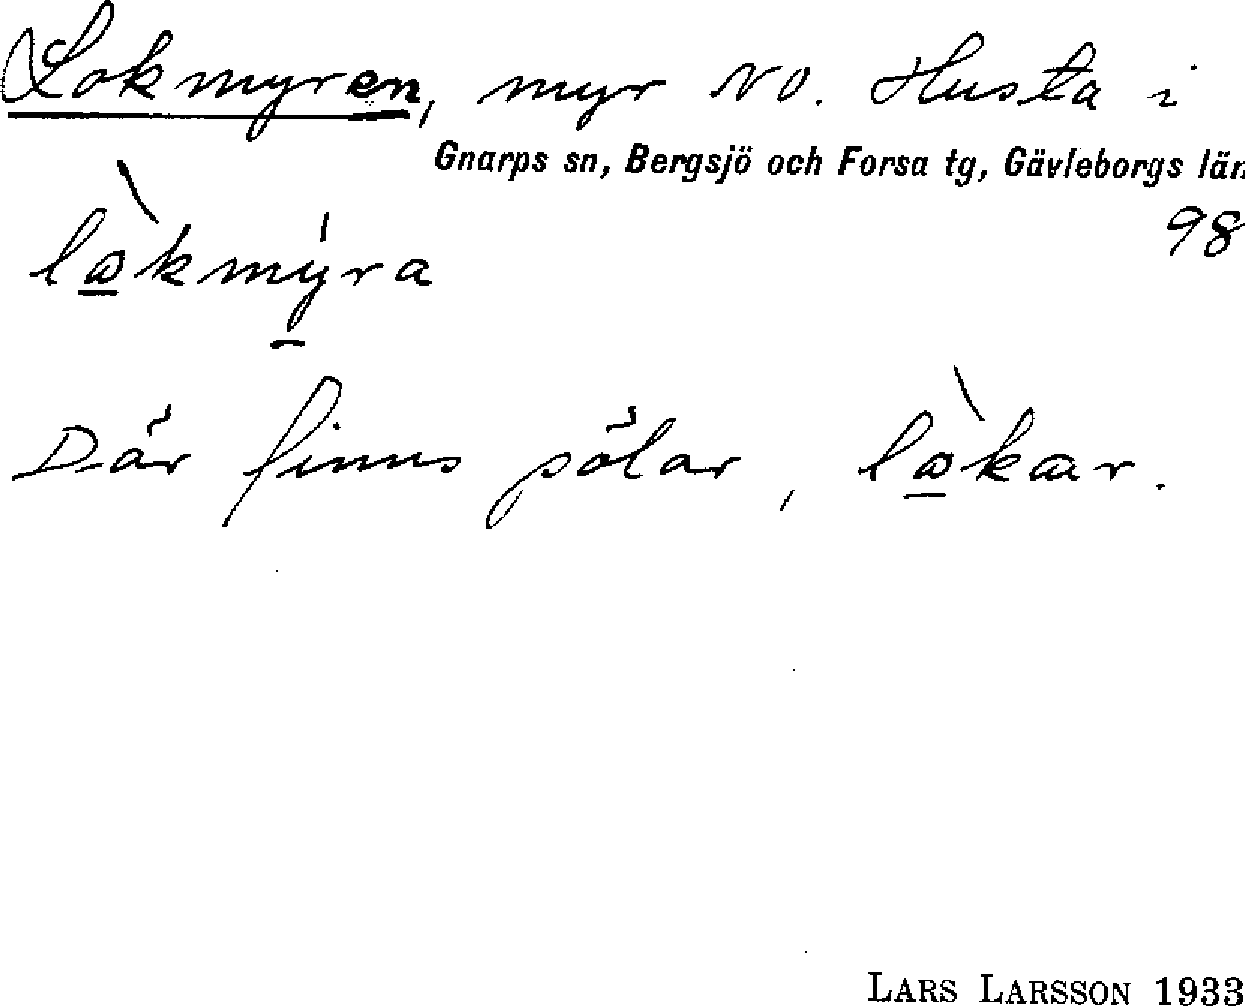 Lokmyren, myr NO. Husta i
Gnarps sn, Bergsjö och Forsa tg, Gävleborgs län
98
lò̲kmý̲ra
Där finns pölar, lò̲kar.
LARS LARSSON 1933